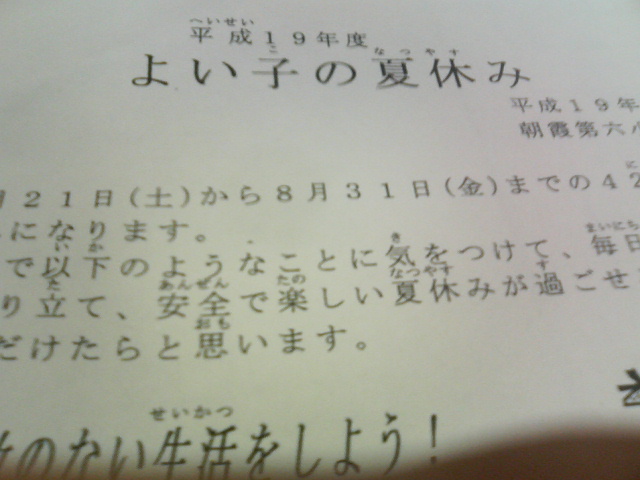 平成19年度
よい子の夏休み
平成19年
朝霞第六
月21日(土)から8月31日(金)までの42
になります。
で以下のようなことに気をつけて、毎日
り立て、安全で楽しい夏休みが過ごせ
だけたらと思います。
のない生活をしよう!